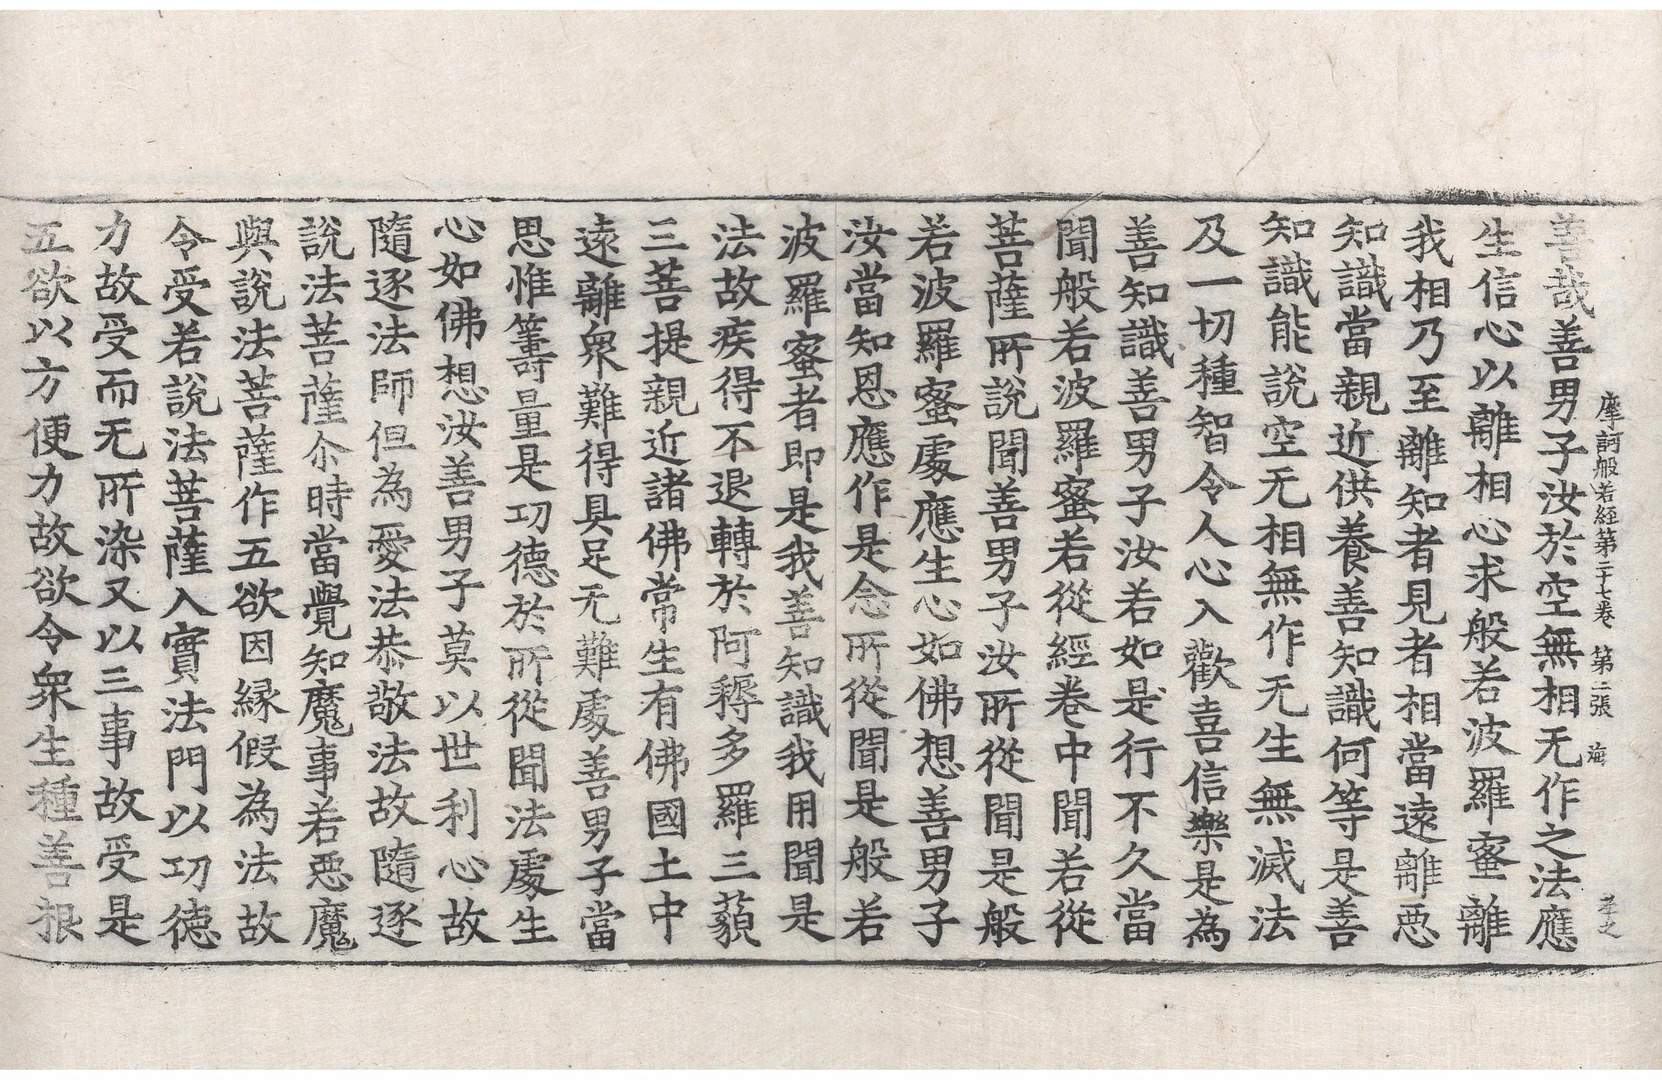 摩訶般若經第二十七卷　第二張　海
善哉善男子汝於空無相无作之法應
生信心以離相心求般若波羅蜜離
我相乃至離知者見者相當遠離惡
知識當親近供養善知識何等是善
知識能說空无相無作无生無滅法
及一切種智令人心入歡喜信樂是為
善知識善男子汝若如是行不久當
聞般若波羅蜜若從經卷中聞若從
菩薩所說聞善男子汝所從聞是般
若波羅蜜處應生心如佛想善男子
汝當知恩應作是念所從聞是般若
波羅蜜者即是我善知識我用聞是
法故疾得不退轉於阿耨多羅三藐
三菩提親近諸佛常生有佛國土中
遠離衆難得具足无難處善男子當
思惟籌量是功德於所從聞法處生
心如佛想汝善男子莫以世利心故
隨逐法師但為愛法恭敬法故隨逐
說法菩薩尒時當覺知魔事若惡魔
與說法菩薩作五欲因緣假為法故
令受若說法菩薩入實法門以功德
力故受而无所染又以三事故受是
五欲以方便力故欲令衆生種善根